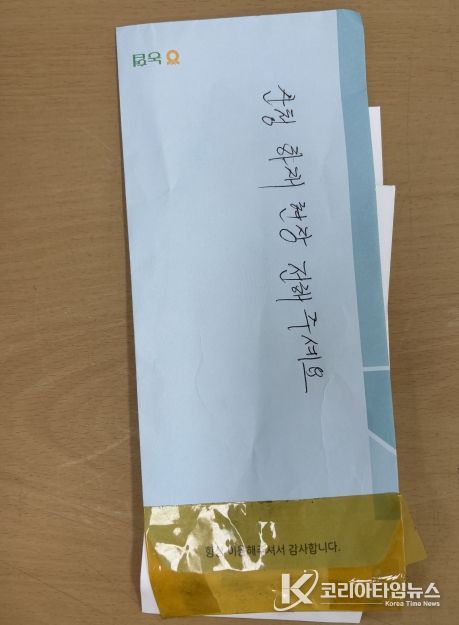 농협
산청 화재 현장 전해 주셔요
항상 이용해주셔서 감사합니다.
K 코리아타임뉴스
Korea Time News